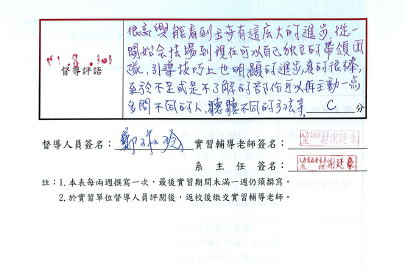 很高興能看到主等有這麼大的進步,從一
開始會怯場到現在可以自己獨立的帶領團
康,引導技巧上也明顯的進步,真的很棒,
至於不足或是不了解的部份可以再主動一點
多問不同的人,聽聽不同的方法等, C 分
督導評語
督導人員簽名: 實習輔導老師簽名:
系主任 簽名:
註:1.本表每兩週撰寫一次,最後實習期間未滿一週仍須撰寫。
2.於實習單位督導人員評閱後,返校後繳交實習輔導老師。